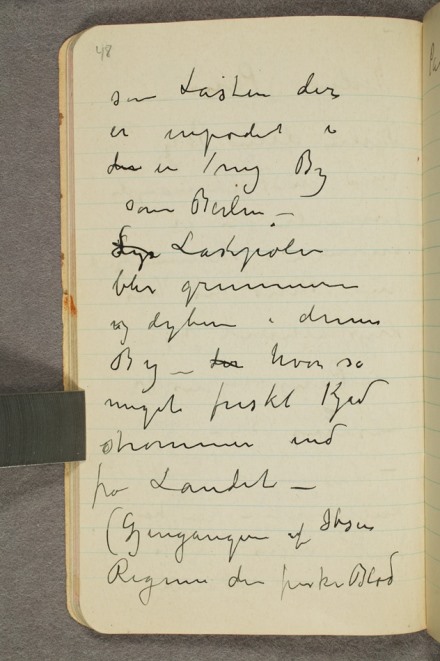 48
som Lasten der
er impodet i
en / ny By
som Berlin –
Lastepølen
blir grummere
og dybere i denne
By – hvor så
meget friskt Kjød
strømmer ind
fra Landet –
(Gjengangere af Ibsen
Regine den friske Blod